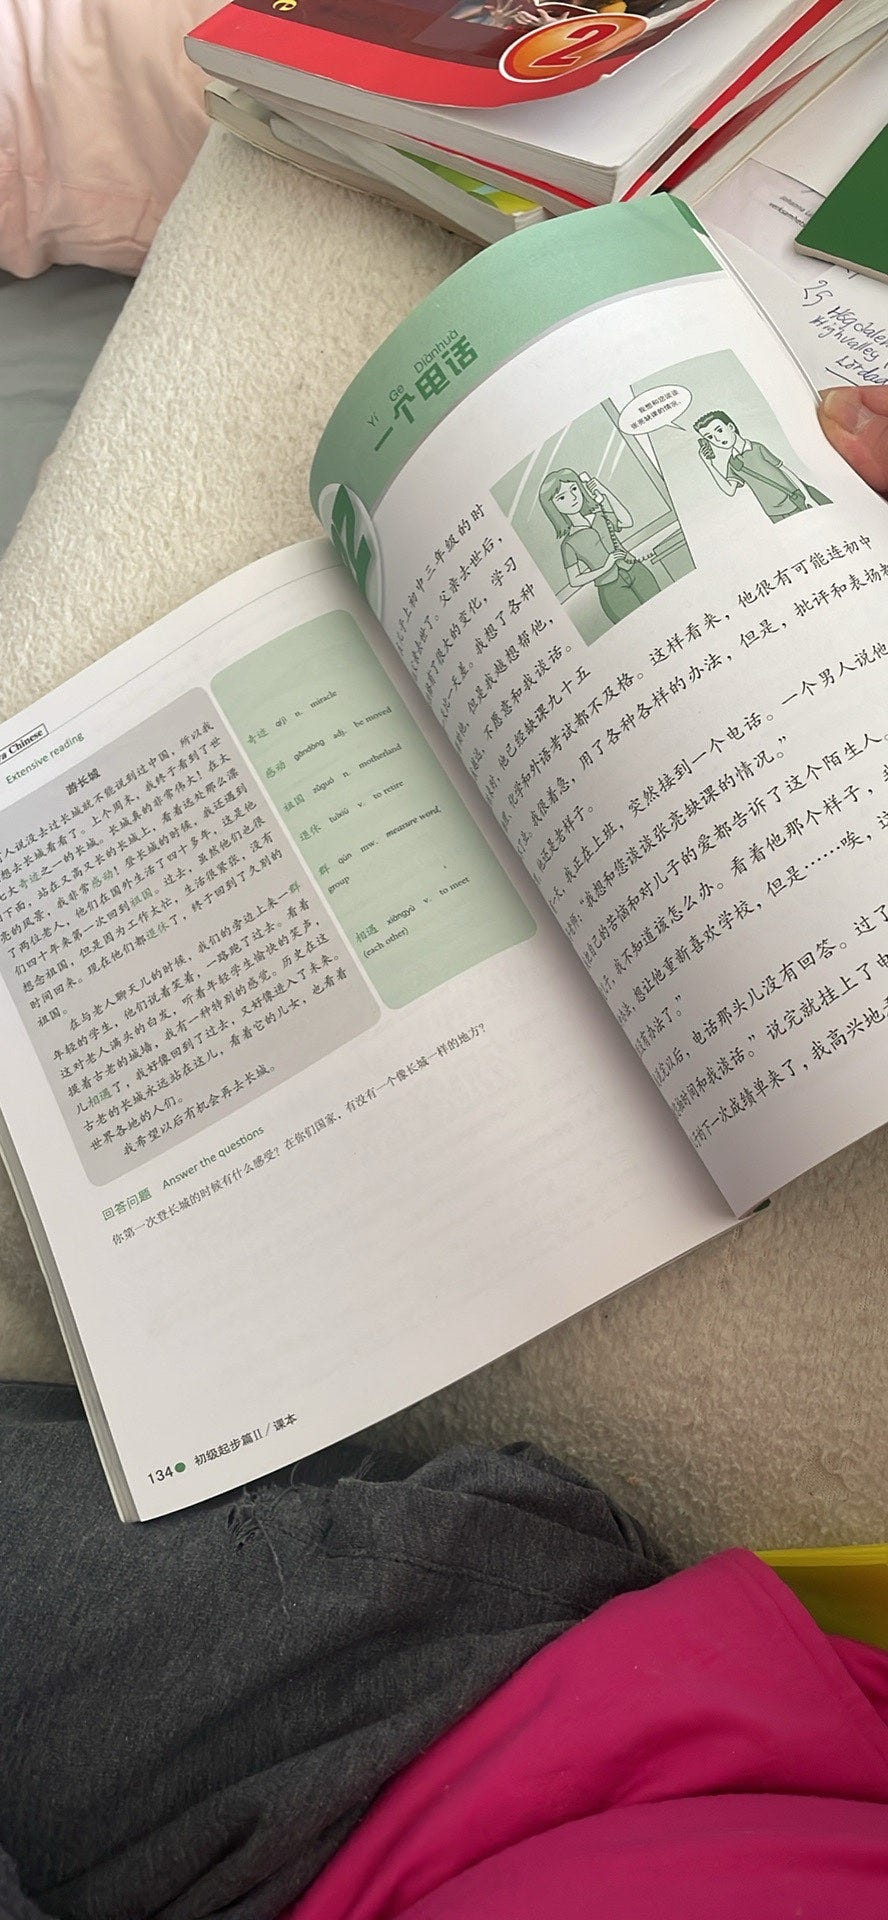 2
25
Highvalley
...a Chinese
Extensive reading
游长城
人说没去过长城就不能说到过中国，所以我
想去长城看看了。上个周末，我终于看到了世
七大奇迹之一的长城。长城真的非常伟大！在太
下面，站在又高又长的长城上，看着远处那么漂
亮的风景，我非常感动！登长城的时候，我还遇到
了两位老人，他们在国外生活了四十多年，这是他
们四十年来第一次回到祖国。过去，虽然他们也很
想念祖国，但是因为工作太忙，生活很紧张，没有
时间回来。现在他们都退休了，终于回到了久别的
祖国。
在与老人聊天儿的时候，我们的旁边上来一群
年轻的学生，他们说着笑着，一路跑了过去。看着
这对老人满头的白发，听着年轻学生愉快的笑声，
摸着古老的城墙，我有一种特别的感觉。历史在这
儿相遇了，我好像回到了过去，又好像进入了未来。
古老的长城永远站在这儿，看着它的儿女，也看着
世界各地的人们。
我希望以后有机会再去长城。
奇迹 qíjì n. miracle
感动 gǎndòng adj. be moved
祖国 zǔguó n. motherland
退休 tuìxiū v. to retire
群 qún mw. measure word,
group
相遇 xiāngyù v. to meet
(each other)
回答问题 Answer the questions
你第一次登长城的时候有什么感受？在你们国家，有没有一个像长城一样的地方？
134 初级起步篇II / 课本
Yí Ge Diànhuà
一个电话
我想和您谈谈
张亮缺课的情况。
儿子上初中三年级的时
去世了。父亲去世后，
有了很大的变化，学习
比一天差。我想了各种
他，但是我越想帮他，
不愿意和我谈话。
他已经缺课九十五
化学和外语考试都不及格。这样看来，他很有可能连初中
我很着急，用了各种各样的办法，但是，批评和表扬都
他还是老样子。
一天，我正在上班，突然接到一个电话。一个男人说他
老师：“我想和您谈谈张亮缺课的情况。”
自己的苦恼和对儿子的爱都告诉了这个陌生人。
我不知道该怎么办。看着他那个样子，
办法，想让他重新喜欢学校，但是……唉，这
没有办法了。”
说完以后，电话那头儿没有回答。过了
时间和我谈话。”说完就挂上了电
下一次成绩单来了，我高兴地